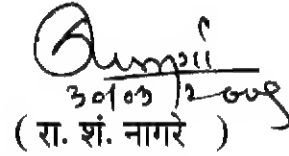 30/03/2009
( रा. शं. नागरे )